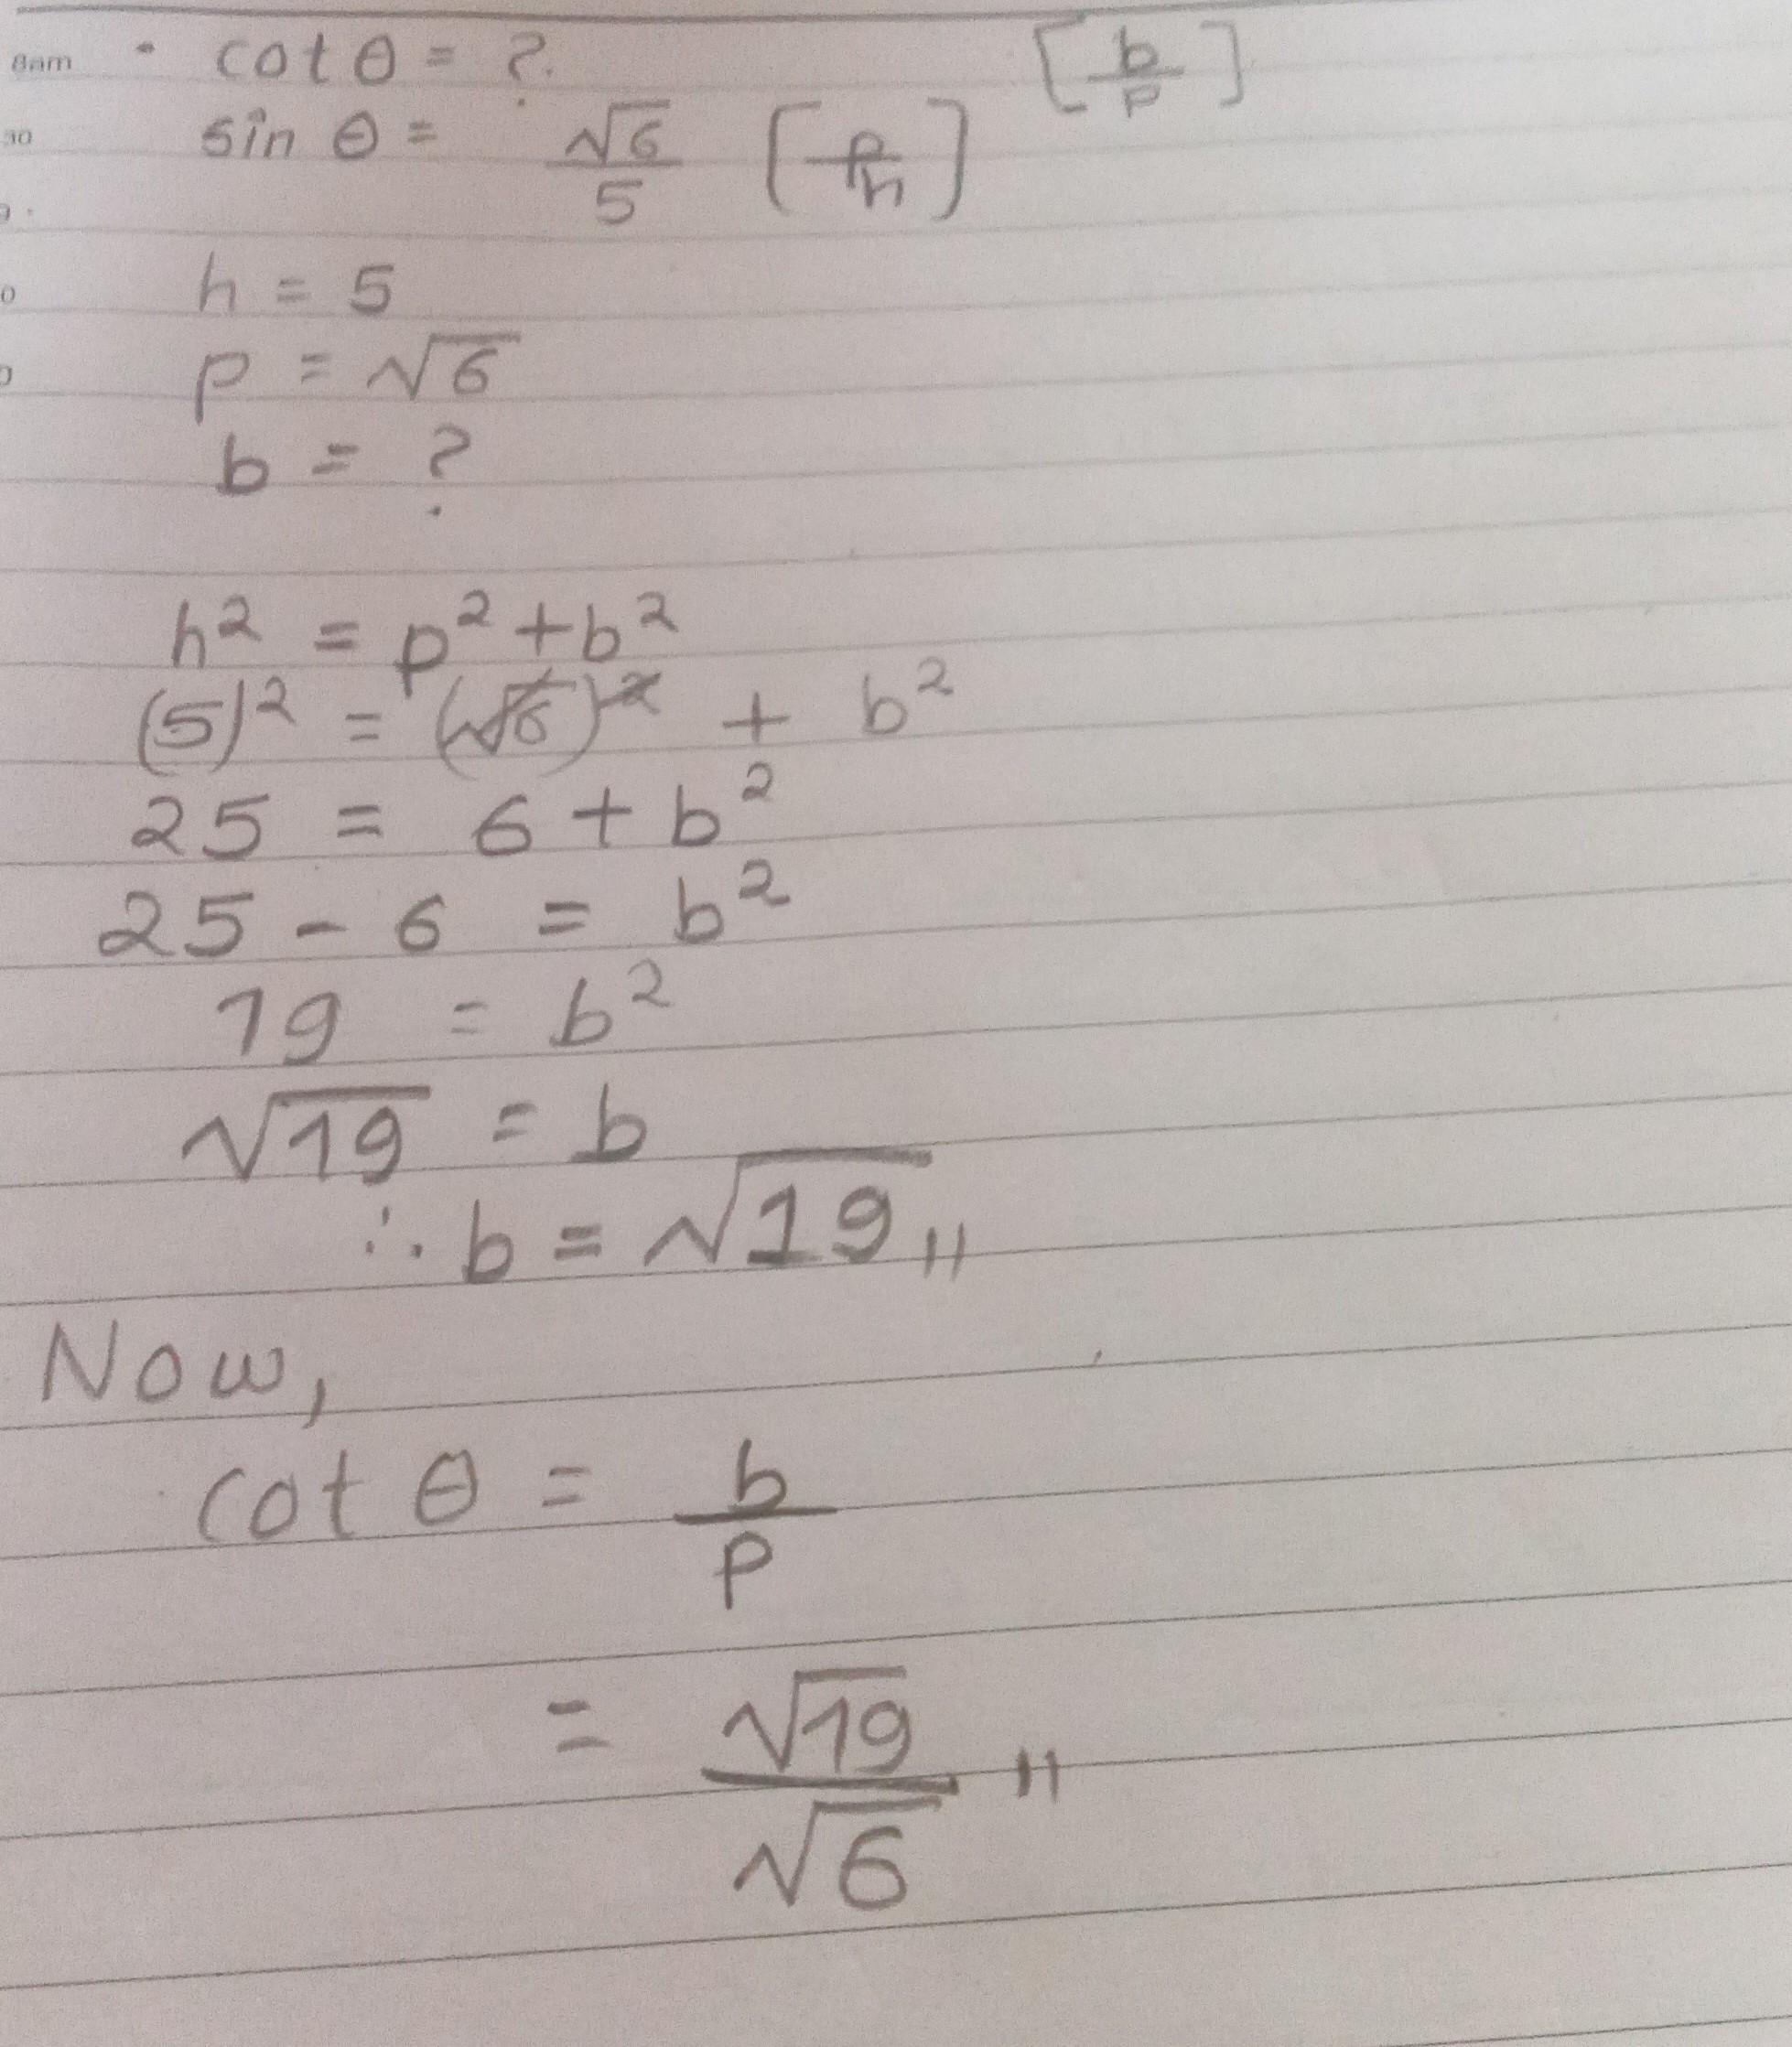 8am · cot θ = ? [b/p]
30 sin θ = √6/5 [p/h]
h = 5
p = √6
b = ?
h² = p² + b²
(5)² = (√6)² + b²
25 = 6 + b²
25 - 6 = b²
19 = b²
√19 = b
∴ b = √19 //
Now,
cot θ = b/p
= √19/√6 //